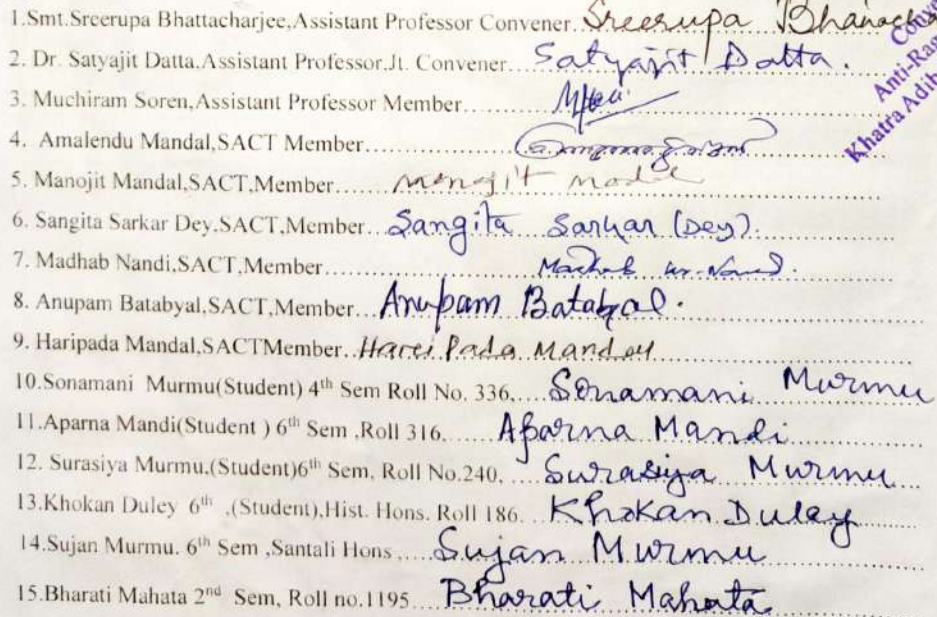 1.Smt.Sreerupa Bhattacharjee,Assistant Professor Convener. Sreerupa
2. Dr. Satyajit Datta.Assistant Professor.Jt. Convener... Satyajit Datta.
3. Muchiram Soren,Assistant Professor Member.....
4. Amalendu Mandal,SACT Member.....
5. Manojit Mandal,SACT,Member..... Manojit
6. Sangita Sarkar Dey.SACT,Member... Sangita Sarkar (Dey).
7. Madhab Nandi,SACT,Member..... Madhab
8. Anupam Batabyal,SACT,Member... Anupam Batabyal.
9. Haripada Mandal,SACTMember.. Hari Pada Mandal
10.Sonamani Murmu(Student) 4th Sem Roll No. 336, Sonamani Murmu
11.Aparna Mandi(Student ) 6th Sem ,Roll 316,..... Aparna Mandi
12. Surasiya Murmu,(Student)6th Sem, Roll No.240, .... Surasiya Murmu
13.Khokan Duley 6th .(Student),Hist. Hons. Roll 186. .. Khokan Duley
14.Sujan Murmu. 6th Sem ,Santali Hons .... Sujan Murmu
15.Bharati Mahata 2nd Sem, Roll no.1195.... Bharati Mahata
Anti-Rag
Khatra Adib